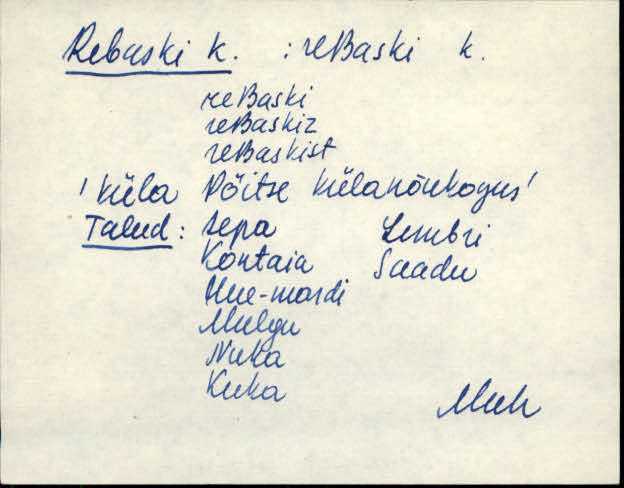 Rebaski k. : reBaski k.
reBaski
reBaskiz
reBaskist
'küla Pöitse külanõukogus'
Talud: Sepa Lembri
Kontaia Saadu
Uue-mardi
Mulgu
Nuka
Kuka
Muh